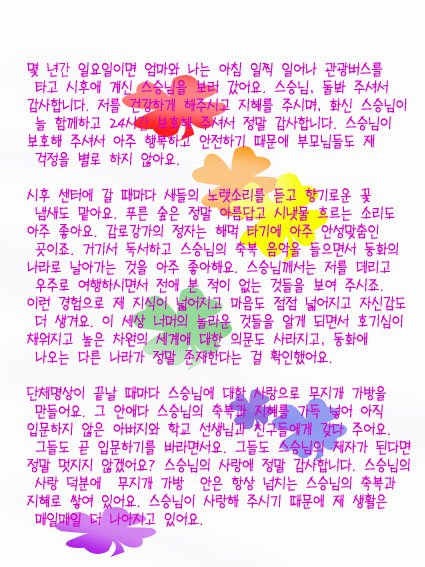 몇 년간 일요일이면 엄마와 나는 아침 일찍 일어나 관광버스를
타고 시후에 계신 스승님을 보러 갔어요. 스승님, 돌봐 주셔서
감사합니다. 저를 건강하게 해주시고 지혜를 주시며, 화신 스승님이
늘 함께하고 24시간 보호해 주셔서 정말 감사합니다. 스승님이
보호해 주셔서 아주 행복하고 안전하기 때문에 부모님들도 제
걱정을 별로 하지 않아요.
시후 센터에 갈 때마다 새들의 노랫소리를 듣고 향기로운 꽃
냄새도 맡아요. 푸른 숲은 정말 아름답고 시냇물 흐르는 소리도
아주 좋아요. 감로강가의 정자는 해먹 타기에 아주 안성맞춤인
곳이죠. 거기서 독서하고 스승님의 축복 음악을 들으면서 동화의
나라로 날아가는 것을 아주 좋아해요. 스승님께서는 저를 데리고
우주로 여행하시면서 전에 본 적이 없는 것들을 보여 주시죠.
이런 경험으로 제 지식이 넓어지고 마음도 점점 넓어지고 자신감도
더 생겨요. 이 세상 너머의 놀라운 것들을 알게 되면서 호기심이
채워지고 높은 차원의 세계에 대한 의문도 사라지고, 동화에
나오는 다른 나라가 정말 존재한다는 걸 확인했어요.
단체명상이 끝날 때마다 스승님에 대한 사랑으로 무지개 가방을
만들어요. 그 안에다 스승님의 축복과 지혜를 가득 넣어 아직
입문하지 않은 아버지와 학교 선생님과 친구들에게 갖다 주어요.
그들도 곧 입문하기를 바라면서요. 그들도 스승님의 제자가 된다면
정말 멋지지 않겠어요? 스승님의 사랑에 정말 감사합니다. 스승님의
사랑 덕분에 무지개 가방 안은 항상 넘치는 스승님의 축복과
지혜로 쌓여 있어요. 스승님이 사랑해 주시기 때문에 제 생활은
매일매일 더 나아지고 있어요.